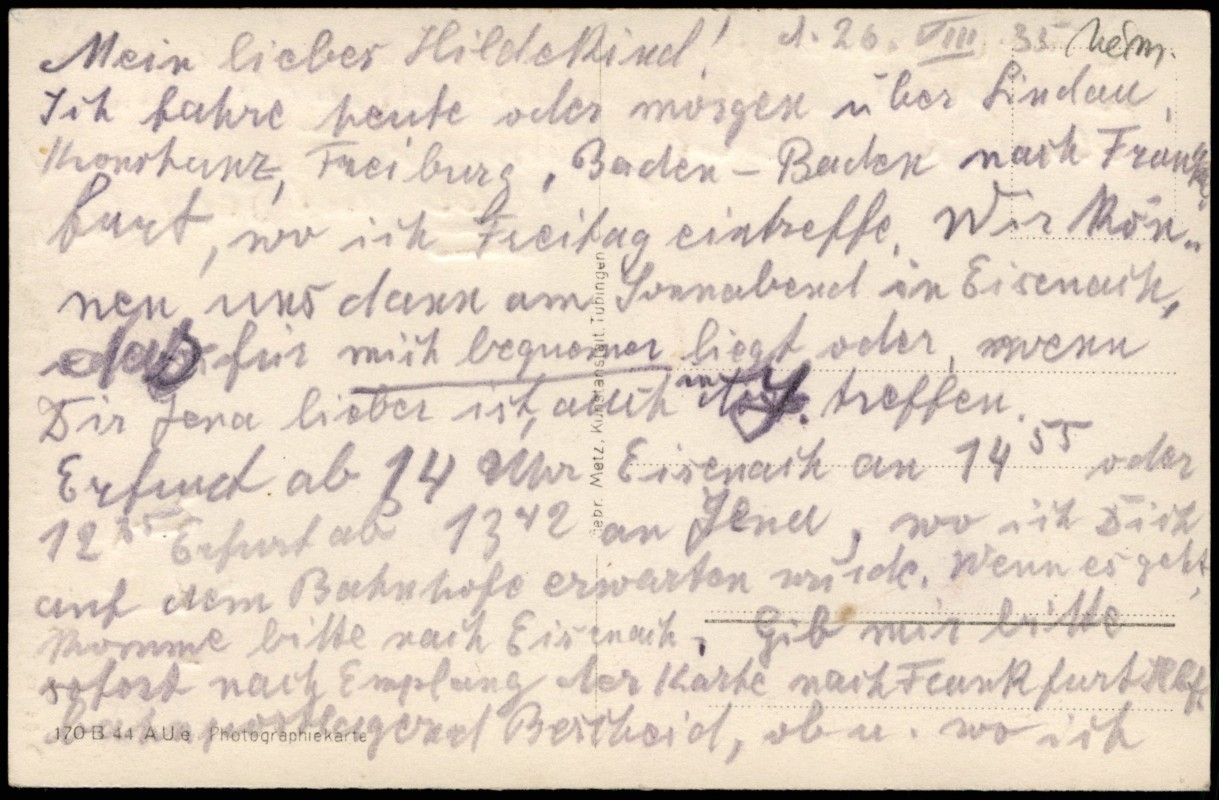 Mein liebes Hildekind! d. 26. VIII 35
Ich fahre heute oder morgen über Lindau,
Konstanz, Freiburg, Baden-Baden nach Frank-
furt, wo ich Freitag eintreffe. Wir kön-
nen uns dann am Sonnabend in Eisenach,
das für mich bequemer liegt oder, wenn
Dir Jena lieber ist, auch treffen.
Erfurt ab 14 Uhr Eisenach an 14 55 oder
12 Erfurt ab 13 42 an Jena, wo ich Dich
auf dem Bahnhofe erwarten würde. Wenn es geht,
komme bitte nach Eisenach. Gib mir bitte
sofort nach Empfang der Karte nach Frankfurt Hbf.
postlagernd Bescheid, ob u. wo ich
170 B 44 A.U.e. Photographiekarte
Gebr. Metz, Kunstanstalt, Tübingen